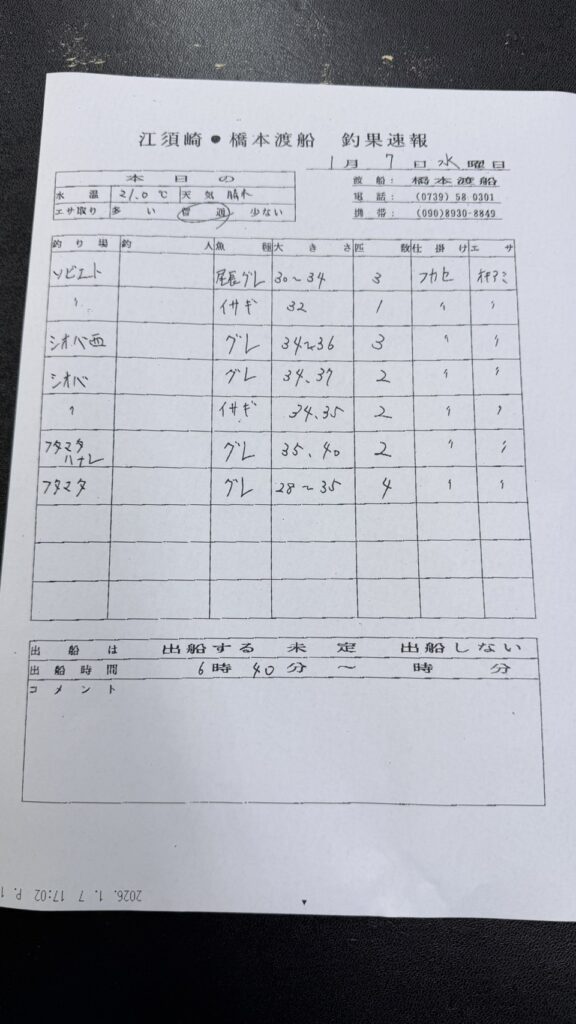 江須崎●橋本渡船 釣果速報
1月 7日 水曜日
本日の
水温 21.0℃ 天気 晴れ
エサ取り 多い 普通 少ない
渡船: 橋本渡船
電話: (0739) 58-0301
携帯: (090)8930-8849
釣り場 釣人 魚種 大きさ 匹数 仕掛け エサ
ソビエト 尾長グレ 30~34 3 フカセ オキアミ
〃 イサギ 32 1 〃 〃
シオバ西 グレ 34~36 3 〃 〃
シオバ グレ 34.37 2 〃 〃
〃 イサギ 34.35 2 〃 〃
フタマタハナレ グレ 35.40 2 〃 〃
フタマタ グレ 28~35 4 〃 〃
出船は 出船する 未定 出船しない
出船時間 6時40分~ 時 分
コメント
2026. 1. 7 17:02 P. 1